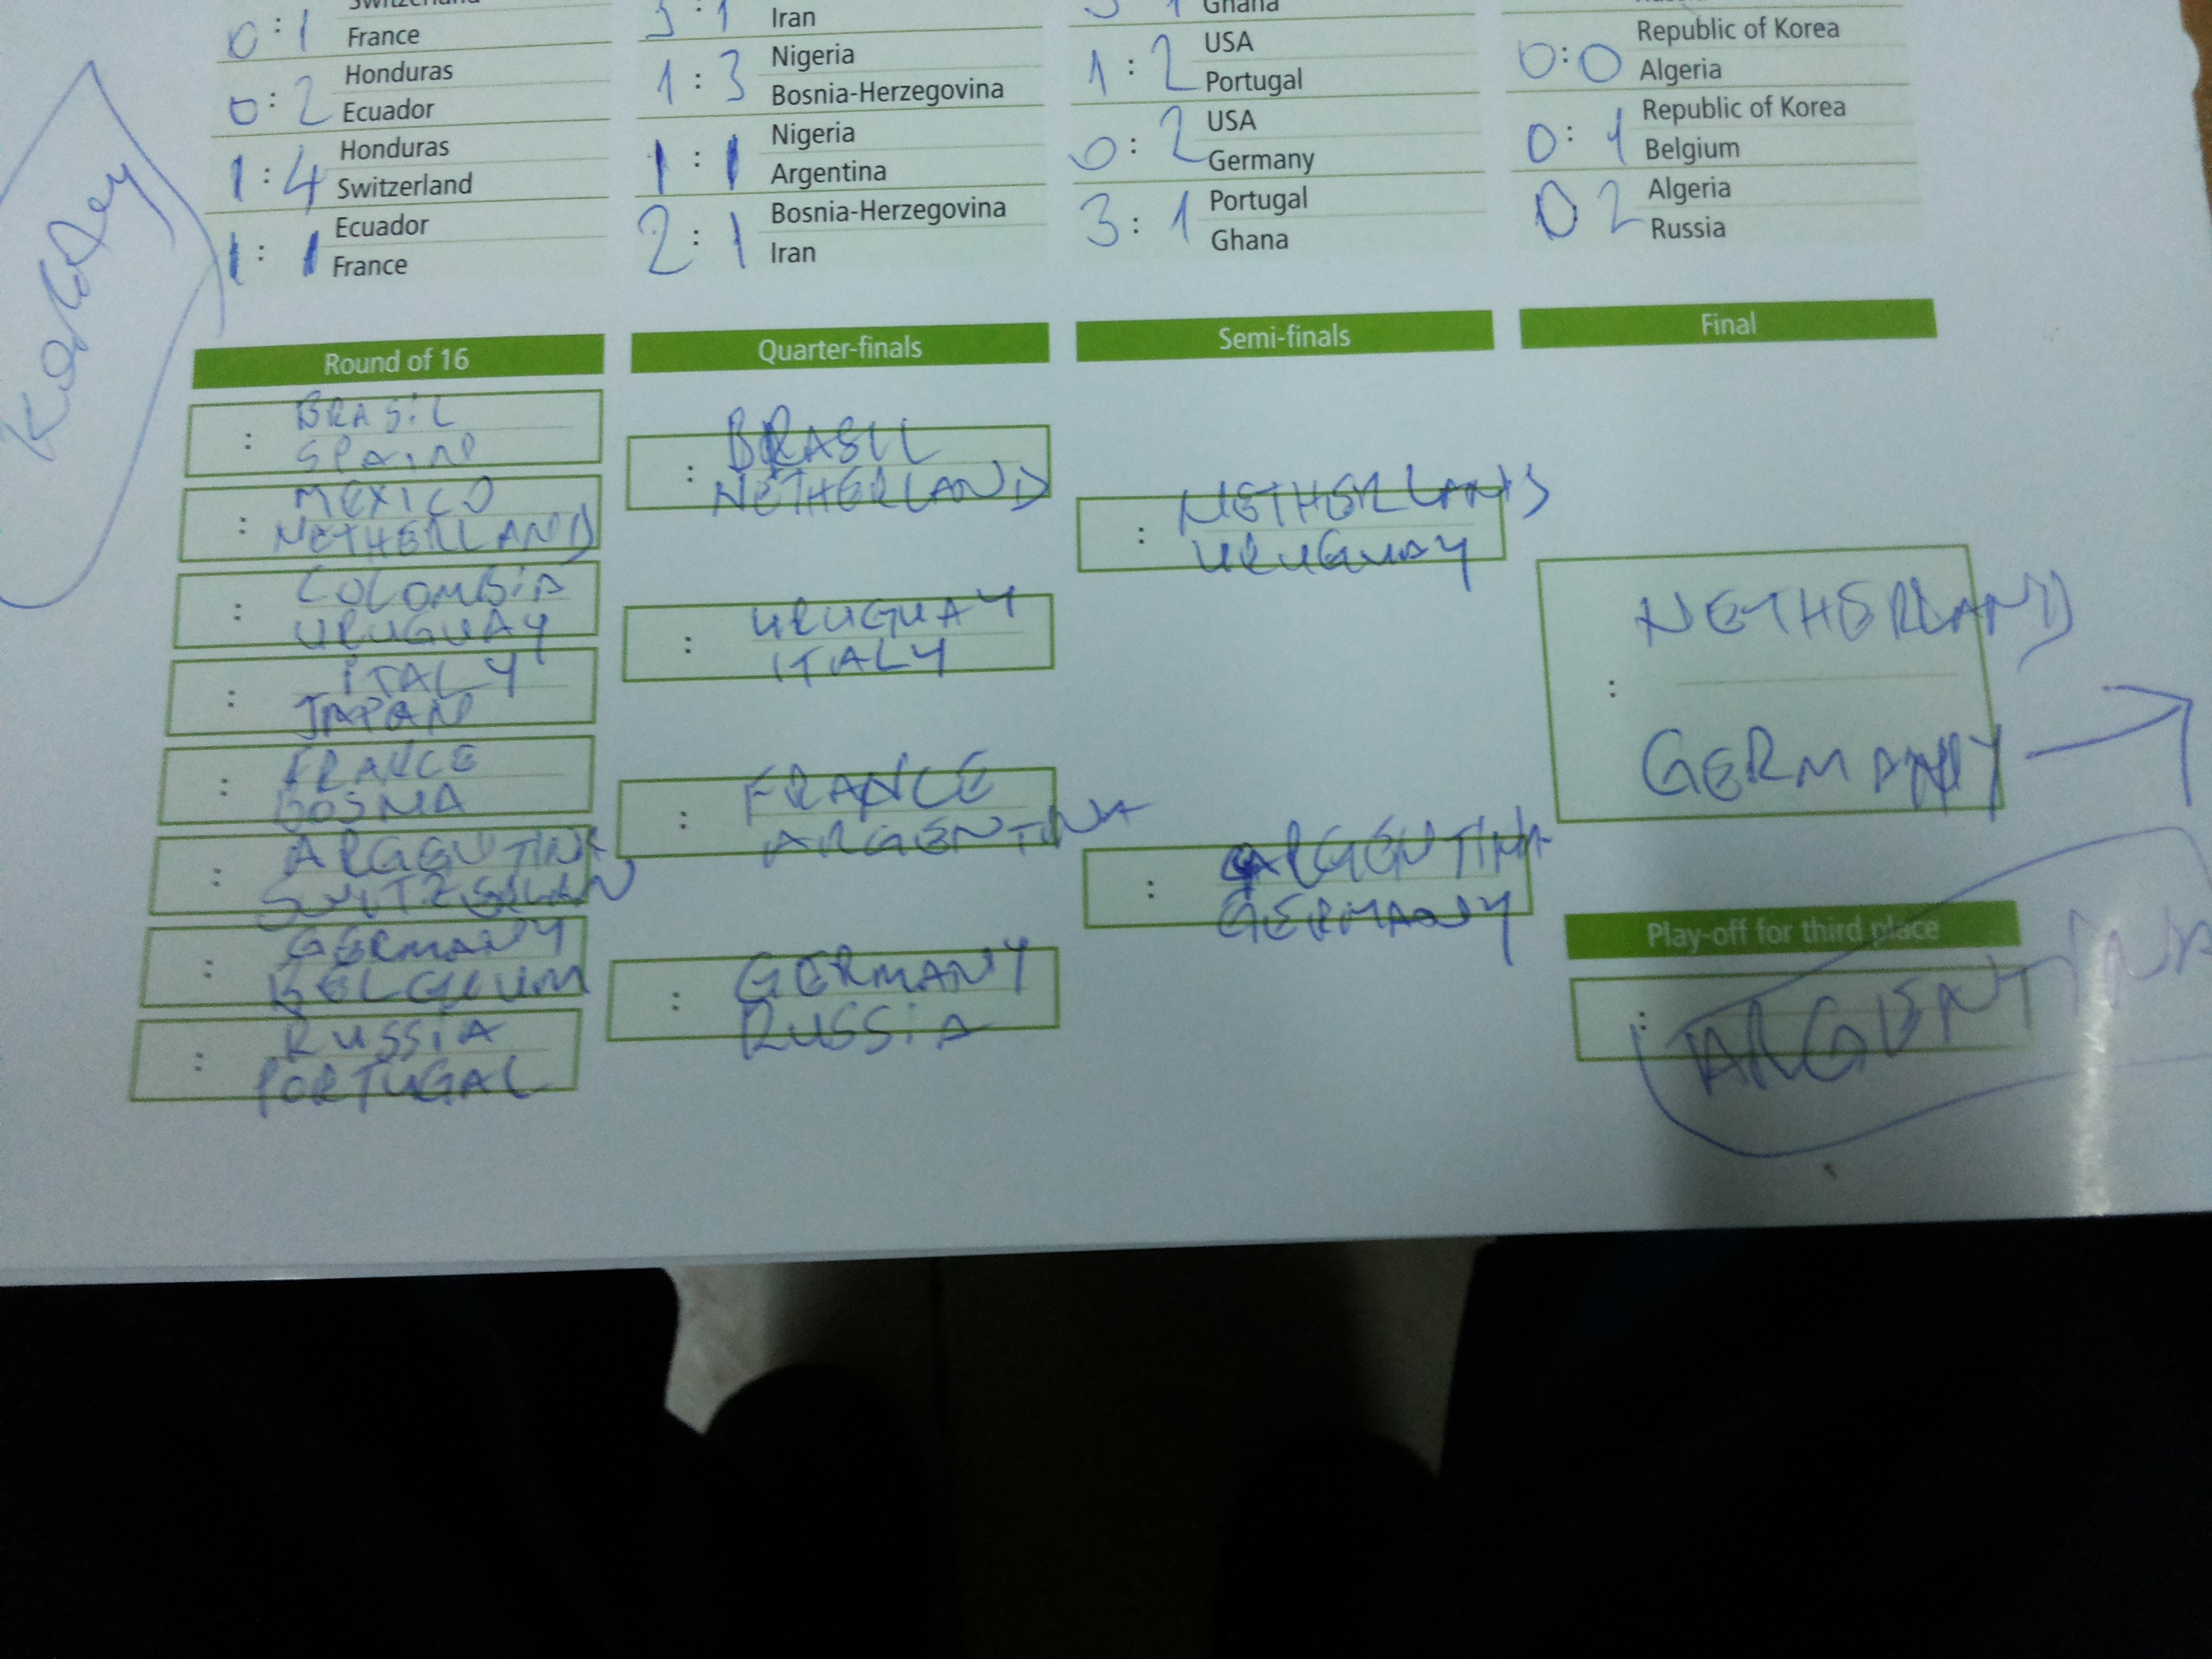 0 : 1 France
0 : 2 Honduras
Ecuador
1 : 4 Honduras
Switzerland
1 : 1 Ecuador
France
Iran
1 : 3 Nigeria
Bosnia-Herzegovina
1 : 1 Nigeria
Argentina
2 : 1 Bosnia-Herzegovina
Iran
Ghana
1 : 2 USA
Portugal
0 : 2 USA
Germany
3 : 1 Portugal
Ghana
0 : 0 Republic of Korea
Algeria
0 : 1 Republic of Korea
Belgium
0 2 Algeria
Russia
Round of 16
: BRASIL
SPAIN
: MEXICO
NETHERLAND
: COLOMBIA
URUGUAY
: ITALY
JAPAN
: FRANCE
BOSNIA
: ARGENTINA
: GERMANY
BELGIUM
: RUSSIA
PORTUGAL
Quarter-finals
: BRASIL
NETHERLAND
: URUGUAY
ITALY
: FRANCE
ARGENTINA
: GERMANY
RUSSIA
Semi-finals
: NETHERLANDS
URUGUAY
: ARGENTINA
GERMANY
Final
NETHERLAND
:
GERMANY
Play-off for third place
: ARGENTINA